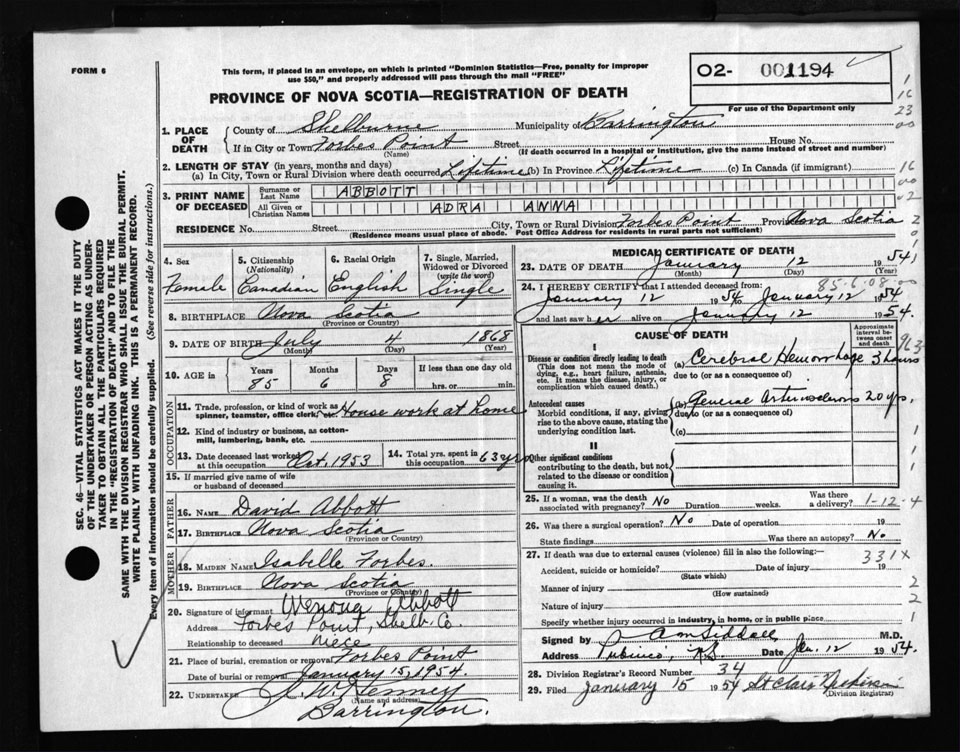 FORM 6
This form, if placed in an envelope, on which is printed "Dominion Statistics—Free, penalty for improper
use $50," and properly addressed will pass through the mail "FREE"
O2- 001194
For use of the Department only
PROVINCE OF NOVA SCOTIA—REGISTRATION OF DEATH
1
16
23
00
16
00
02
2
0
0
1. PLACE OF DEATH
County of Shelburne Municipality of Barrington
If in City or Town Forbes Point Street House No.
(Name) (If death occurred in a hospital or institution, give the name instead of street and number)
2. LENGTH OF STAY (in years, months and days)
(a) In City, Town or Rural Division where death occurred Lifetime (b) In Province Lifetime (c) In Canada (if immigrant)
3. PRINT NAME OF DECEASED
Surname or Last Name ABBOTT
All Given or Christian Names ADRA ANNA
RESIDENCE No. Street City, Town or Rural Division Forbes Point Province Nova Scotia
(Residence means usual place of abode. Post Office Address for residents in rural parts not sufficient)
SEC. 46—VITAL STATISTICS ACT MAKES IT THE DUTY
OF THE UNDERTAKER OR PERSON ACTING AS UNDER-
TAKER TO OBTAIN ALL THE PARTICULARS REQUIRED
IN THE "REGISTRATION OF DEATH" AND TO FILE THE
SAME WITH THE DIVISION REGISTRAR WHO SHALL ISSUE THE BURIAL PERMIT.
WRITE PLAINLY WITH UNFADING INK. THIS IS A PERMANENT RECORD.
Every item of information should be carefully supplied. (See reverse side for instructions.)
4. Sex
Female
5. Citizenship
(Nationality)
Canadian
6. Racial Origin
English
7. Single, Married,
Widowed or Divorced
(write the word)
Single
8. BIRTHPLACE Nova Scotia
(Province or Country)
9. DATE OF BIRTH July 4 1868
(Month) (Day) (Year)
10. AGE in
Years Months Days If less than one day old
85 6 8 hrs. or min.
OCCUPATION
11. Trade, profession, or kind of work as
spinner, teamster, office clerk, etc. House work at home
12. Kind of industry or business, as cotton-
mill, lumbering, bank, etc.
13. Date deceased last worked
at this occupation Oct. 1953
14. Total yrs. spent in
this occupation 63 yrs
15. If married give name of wife
or husband of deceased
FATHER
16. NAME David Abbott
17. BIRTHPLACE Nova Scotia
(Province or Country)
MOTHER
18. MAIDEN NAME Isabelle Forbes.
19. BIRTHPLACE Nova Scotia
(Province or Country)
20. Signature of informant Wenona Abbott
Address Forbes Point, Shelb. Co.
Relationship to deceased niece
21. Place of burial, cremation or removal Forbes Point
Date of burial or removal January 15, 1954.
22. UNDERTAKER J. W. Kenney
(Name and address)
Barrington.
MEDICAL CERTIFICATE OF DEATH
23. DATE OF DEATH January 12 1954
(Month) (Day) (Year)
85-6-08
24. I HEREBY CERTIFY that I attended deceased from:
January 12 1954 to January 12 1954
and last saw her alive on January 12 1954.
CAUSE OF DEATH
Approximate
interval be-
tween onset
and death
I
Disease or condition directly leading to death
(This does not mean the mode of
dying, e.g., heart failure, asthenia,
etc. It means the disease, injury, or
complication which caused death.)
(a) Cerebral Hemorrhage 3 hours
due to (or as a consequence of)
Antecedent causes
Morbid conditions, if any, giving
rise to the above cause, stating the
underlying condition last.
(b) General Arteriosclerosis 20 yrs.
due to (or as a consequence of)
(c)
II
Other significant conditions
contributing to the death, but not
related to the disease or condition
causing it.
25. If a woman, was the death
associated with pregnancy? No Duration weeks. Was there
a delivery? 1-12-4
26. Was there a surgical operation? No Date of operation 19
State findings Was there an autopsy? No
27. If death was due to external causes (violence) fill in also the following:— 331X
Accident, suicide or homicide? Date of injury 19
(State which)
Manner of injury
(How sustained)
Nature of injury
Specify whether injury occurred in industry, in home, or in public place
2
2
1
Signed by A M Siddall M.D.
Address Pubnico, N.S. Date Jan. 12 1954.
28. Division Registrar's Record Number 34
29. Filed January 15 1954 St Clair
(Division Registrar)